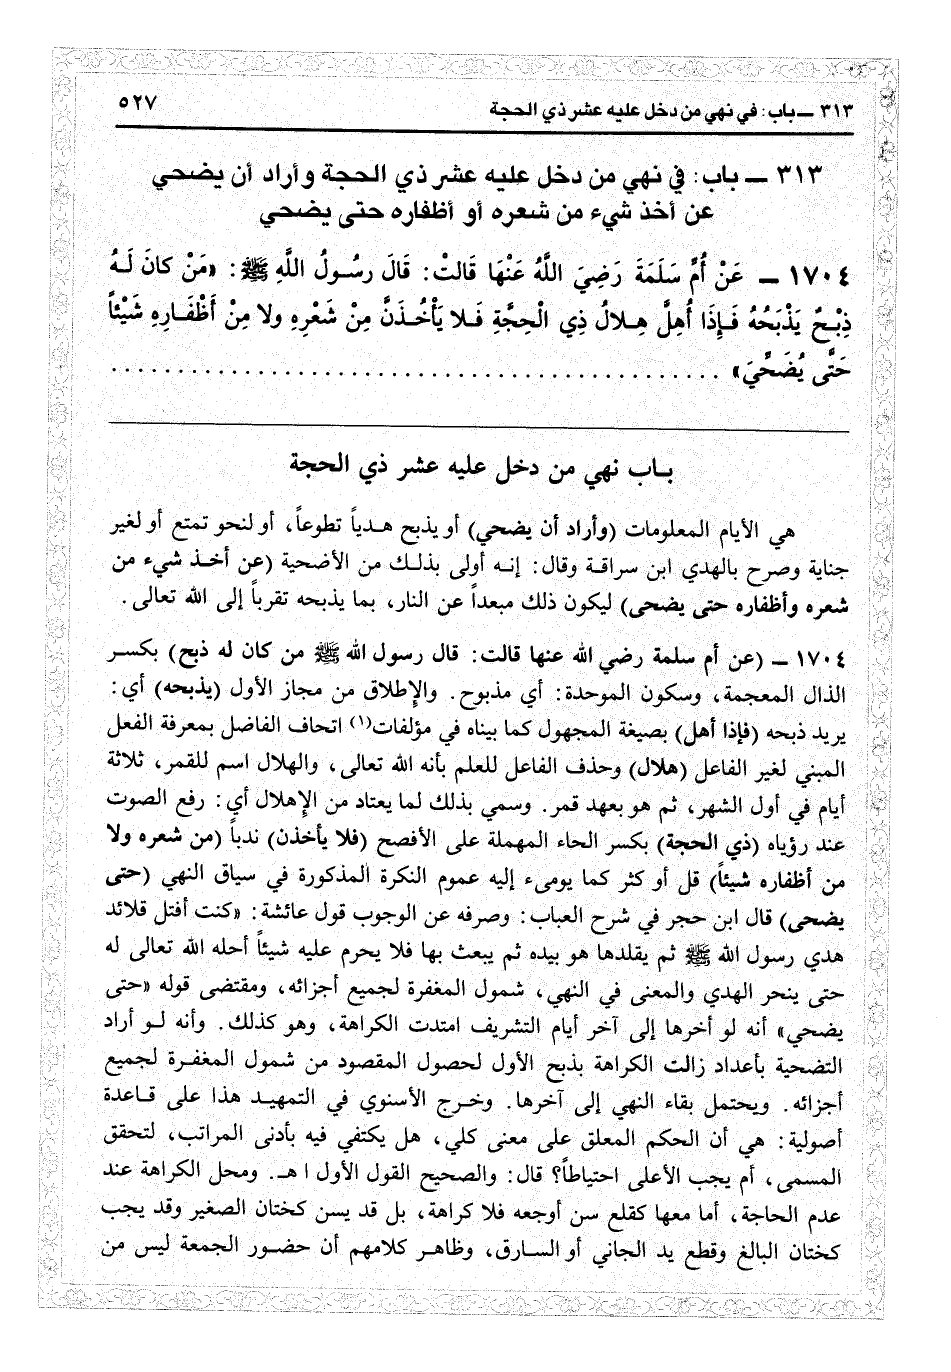 ٣١٣ ــ باب: في نهي من دخل عليه عشر ذي الحجة ٥٢٧
٣١٣ ــ باب: في نهي من دخل عليه عشر ذي الحجة وأراد أن يضحي
عن أخذ شيء من شعره أو أظفاره حتى يضحي
١٧٠٤ ــ عَنْ أُمِّ سَلَمَةَ رَضِيَ اللَّهُ عَنْهَا قَالَتْ: قَالَ رَسُولُ اللَّهِ ﷺ: «مَنْ كانَ لَهُ
ذِبْحٌ يَذْبَحُهُ فَإِذَا أُهِلَّ هِلالُ ذِي الْحِجَّةِ فَلا يَأْخُذَنَّ مِنْ شَعْرِهِ ولا مِنْ أَظْفَارِهِ شَيْئاً
حَتَّى يُضَحِّيَ» ........................................
باب نهي من دخل عليه عشر ذي الحجة
هي الأيام المعلومات (وأراد أن يضحي) أو يذبح هدياً تطوعاً، أو لنحو تمتع أو لغير
جناية وصرح بالهدي ابن سراقة وقال: إنه أولى بذلك من الأضحية (عن أخذ شيء من
شعره وأظفاره حتى يضحى) ليكون ذلك مبعداً عن النار، بما يذبحه تقرباً إلى الله تعالى.
١٧٠٤ ــ (عن أم سلمة رضي الله عنها قالت: قال رسول الله ﷺ من كان له ذبح) بكسر
الذال المعجمة، وسكون الموحدة: أي مذبوح. والإطلاق من مجاز الأول (يذبحه) أي:
يريد ذبحه (فإذا أهل) بصيغة المجهول كما بيناه في مؤلفات(١) اتحاف الفاضل بمعرفة الفعل
المبني لغير الفاعل (هلال) وحذف الفاعل للعلم بأنه الله تعالى، والهلال اسم للقمر، ثلاثة
أيام في أول الشهر، ثم هو بعهد قمر. وسمي بذلك لما يعتاد من الإهلال أي: رفع الصوت
عند رؤياه (ذي الحجة) بكسر الحاء المهملة على الأفصح (فلا يأخذن) ندباً (من شعره ولا
من أظفاره شيئاً) قل أو كثر كما يومىء إليه عموم النكرة المذكورة في سياق النهي (حتى
يضحى) قال ابن حجر في شرح العباب: وصرفه عن الوجوب قول عائشة: «كنت أفتل قلائد
هدي رسول الله ﷺ ثم يقلدها هو بيده ثم يبعث بها فلا يحرم عليه شيئاً أحله الله تعالى له
حتى ينحر الهدي والمعنى في النهي، شمول المغفرة لجميع أجزائه، ومقتضى قوله «حتى
يضحي» أنه لو أخرها إلى آخر أيام التشريف امتدت الكراهة، وهو كذلك. وأنه لو أراد
التضحية بأعداد زالت الكراهة بذبح الأول لحصول المقصود من شمول المغفرة لجميع
أجزائه. ويحتمل بقاء النهي إلى آخرها. وخرج الأسنوي في التمهيد هذا على قاعدة
أصولية: هي أن الحكم المعلق على معنى كلي، هل يكتفي فيه بأدنى المراتب، لتحقق
المسمى، أم يجب الأعلى احتياطاً؟ قال: والصحيح القول الأول ا هـ. ومحل الكراهة عند
عدم الحاجة، أما معها كقلع سن أوجعه فلا كراهة، بل قد يسن كختان الصغير وقد يجب
كختان البالغ وقطع يد الجاني أو السارق، وظاهر كلامهم أن حضور الجمعة ليس من